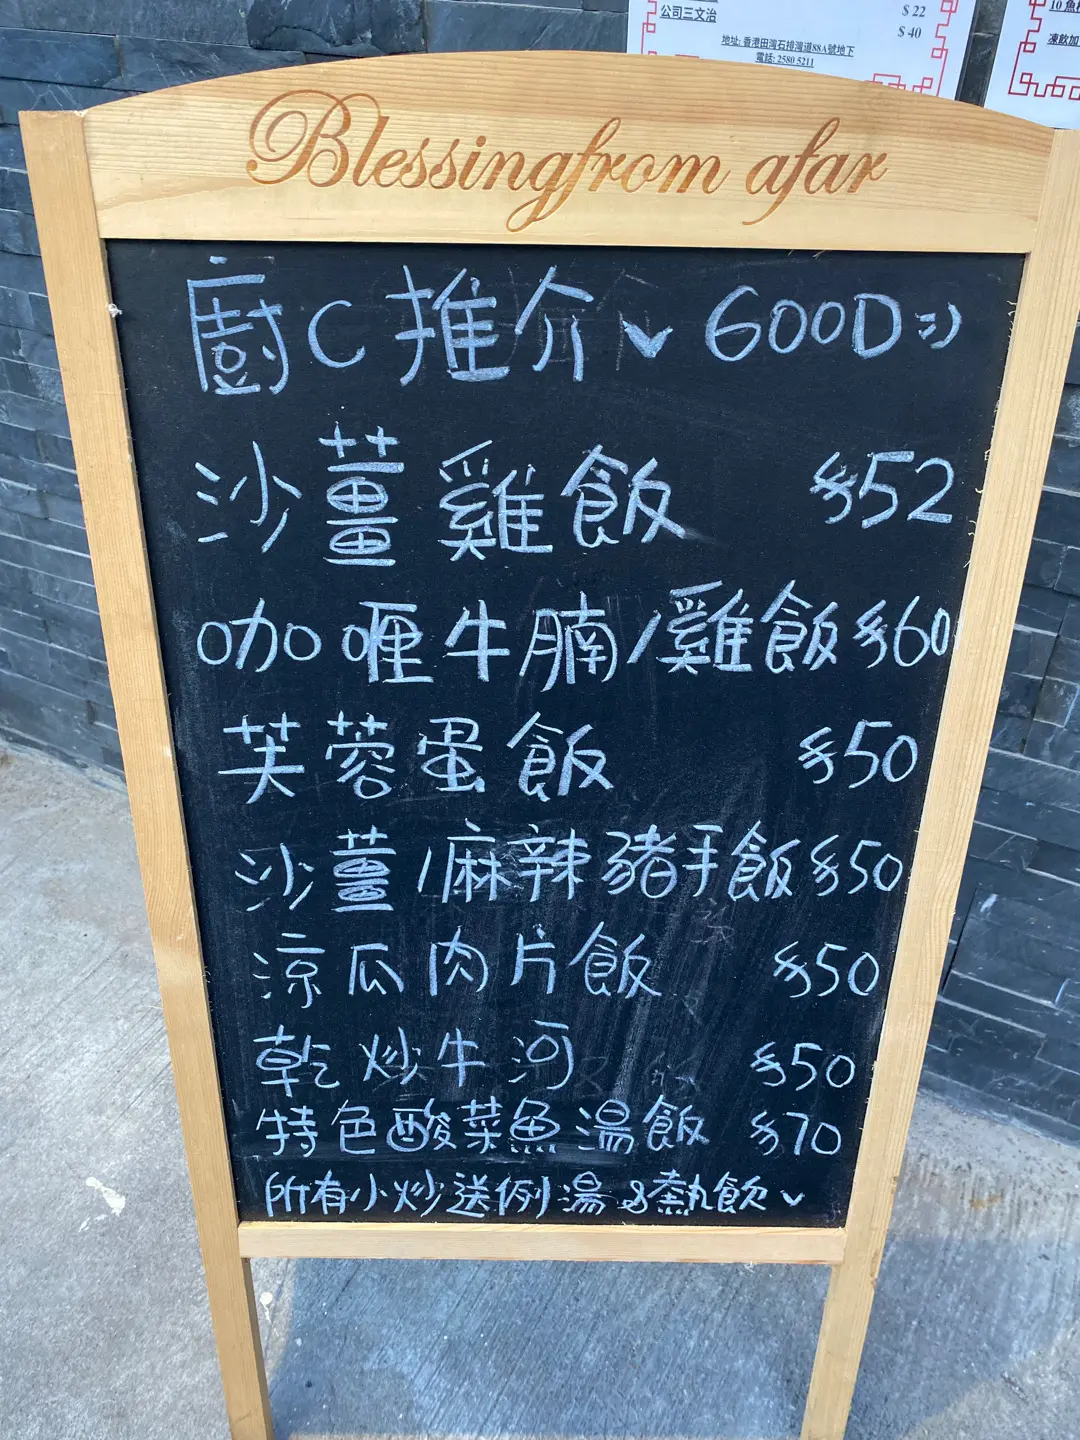 公司三文治
$ 22
$ 40
地址: 香港田灣石排灣道88A號地下
電話: 2580 5211
凍飲加
Blessingfrom afar
廚C推介 GOOD =)
沙薑雞飯 $52
咖喱牛腩/雞飯 $60
芙蓉蛋飯 $50
沙薑/麻辣豬手飯 $50
涼瓜肉片飯 $50
乾炒牛河 $50
特色酸菜魚湯飯 $70
所有小炒送例湯&熱飲